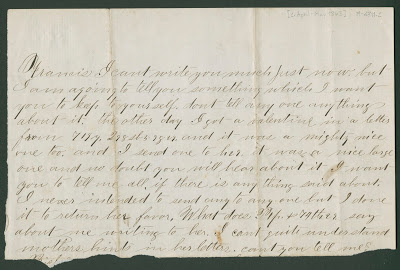 Francis I cant write you much just now, but
I am agoing to tell you something which I want
you to keep to yourself dont tell any one anything
about it. the other day I got a valentine in a letter
from and it was a mighty nice
one too. and I send one to her it was a nice large
one and no doubt you will hear about it I want
you to tell me all if there is any thing said about
I never intended to send any to any one but I done
it to return her favor. What does Pap & Mother say
about me writing to her. I cant quite understand
mothers hints in her letter. cant you tell me?